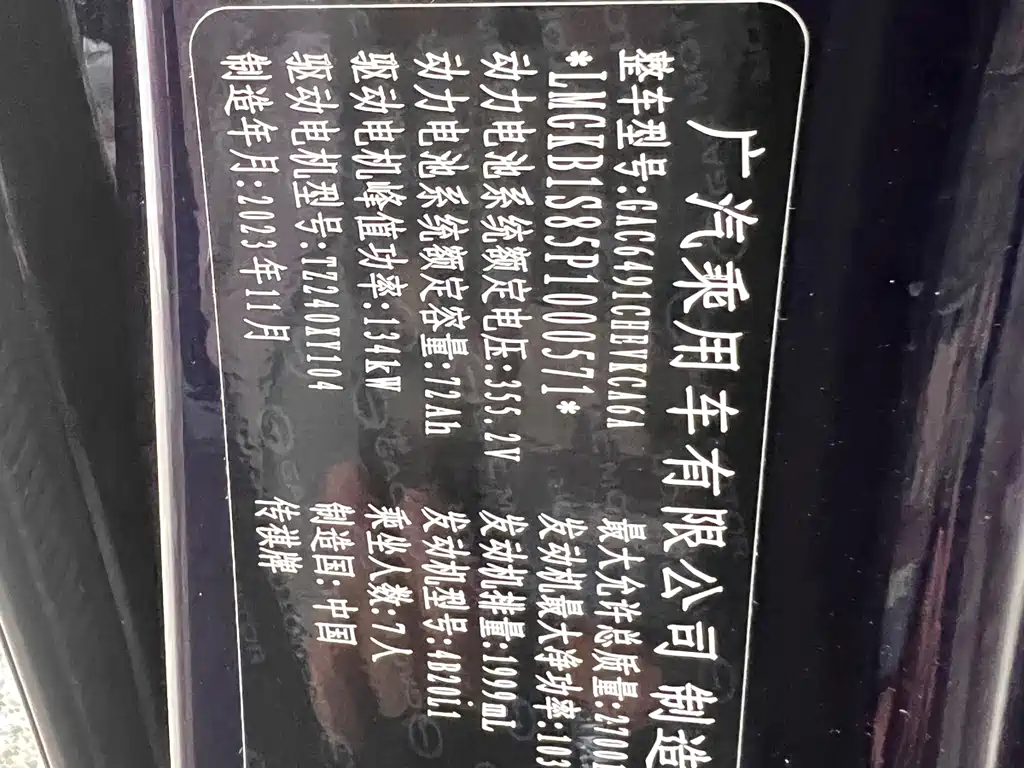 广汽乘用车有限公司 制造
整车型号:GAC6491CHEVCA6A
*LMGKB1S85P100571*
动力电池系统额定电压:355.2V
动力电池系统额定容量:72Ah
驱动电机峰值功率:134kW
驱动电机型号:TZ240XY104
制造年月:2023年11月
最大允许总质量:2700
发动机最大净功率:103
发动机排量:1991mL
发动机型号:4B20J1
乘坐人数:7人
制造国:中国
传祺牌